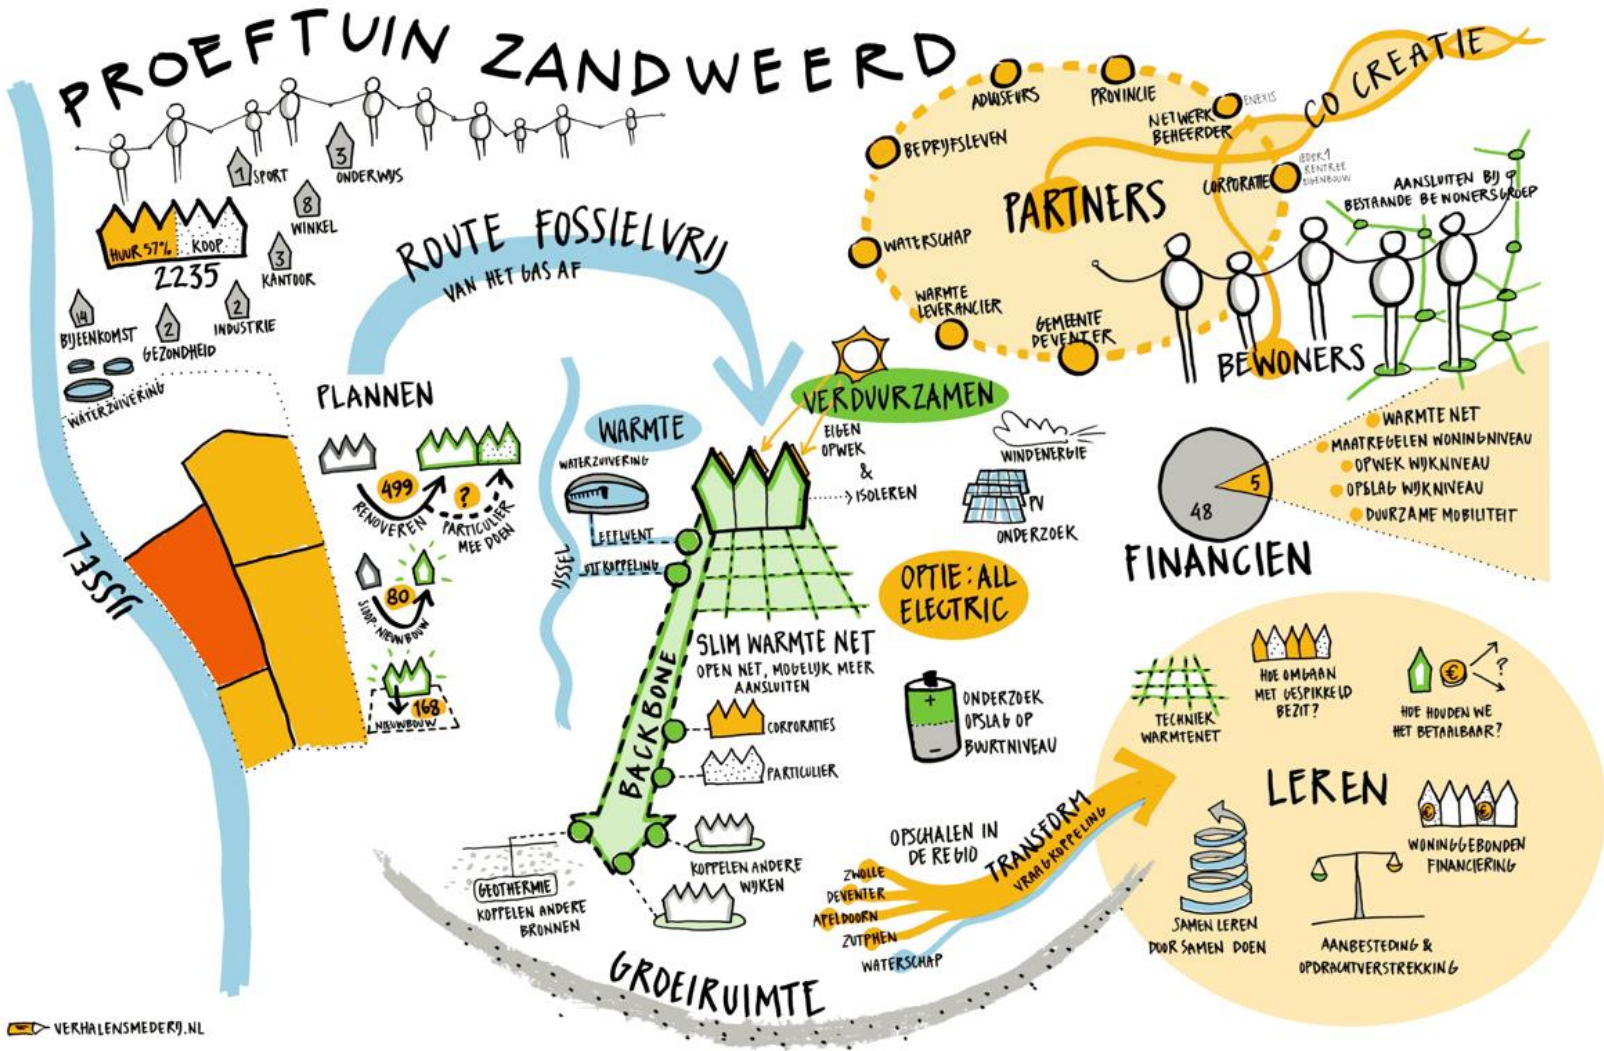 PROEFTUIN ZANDWEERD
1
SPORT
3
ONDERWIJS
8
WINKEL
3
KANTOOR
2
INDUSTRIE
2
GEZONDHEID
14
BIJEENKOMST
HUUR 57%
KOOP
2235
WATERZUIVERING
IJSSEL
PLANNEN
499
RENOVEREN
?
PARTICULIER
MEE DOEN
80
SLOOP-NIEUWBOUW
168
NIEUWBOUW
ROUTE FOSSIELVRIJ
VAN HET GAS AF
WARMTE
WATERZUIVERING
EFFLUENT
UITKOPPELING
IJSSEL
VERDUURZAMEN
EIGEN
OPWEK
&
ISOLEREN
WINDENERGIE
PV
ONDERZOEK
OPTIE: ALL
ELECTRIC
SLIM WARMTE NET
OPEN NET, MOGELIJK MEER
AANSLUITEN
BACKBONE
CORPORATIES
PARTICULIER
KOPPELEN ANDERE
WIJKEN
GEOTHERMIE
KOPPELEN ANDERE
BRONNEN
+
-
ONDERZOEK
OPSLAG OP
BUURTNIVEAU
GROEIRUIMTE
OPSCHALEN IN
DE REGIO
ZWOLLE
DEVENTER
APELDOORN
ZUTPHEN
WATERSCHAP
TRANSFORM
VRAAGKOPPELING
PARTNERS
ADVISEURS
PROVINCIE
NETWERK
BEHEERDER
ENEXIS
CORPORATIE
IEDER1
RENTREE
EIGENBOUW
BEDRIJFSLEVEN
WATERSCHAP
WARMTE
LEVERANCIER
GEMEENTE
DEVENTER
CO CREATIE
BEWONERS
AANSLUITEN BIJ
BESTAANDE BEWONERSGROEP
48
5
FINANCIEN
WARMTE NET
MAATREGELEN WONINGNIVEAU
OPWEK WIJKNIVEAU
OPSLAG WIJKNIVEAU
DUURZAME MOBILITEIT
LEREN
TECHNIEK
WARMTENET
HOE OMGAAN
MET GESPIKKELD
BEZIT?
€
?
HOE HOUDEN WE
HET BETAALBAAR?
€
€
WONINGGEBONDEN
FINANCIERING
SAMEN LEREN
DOOR SAMEN DOEN
AANBESTEDING &
OPDRACHTVERSTREKKING
VERHALENSMEDERIJ.NL